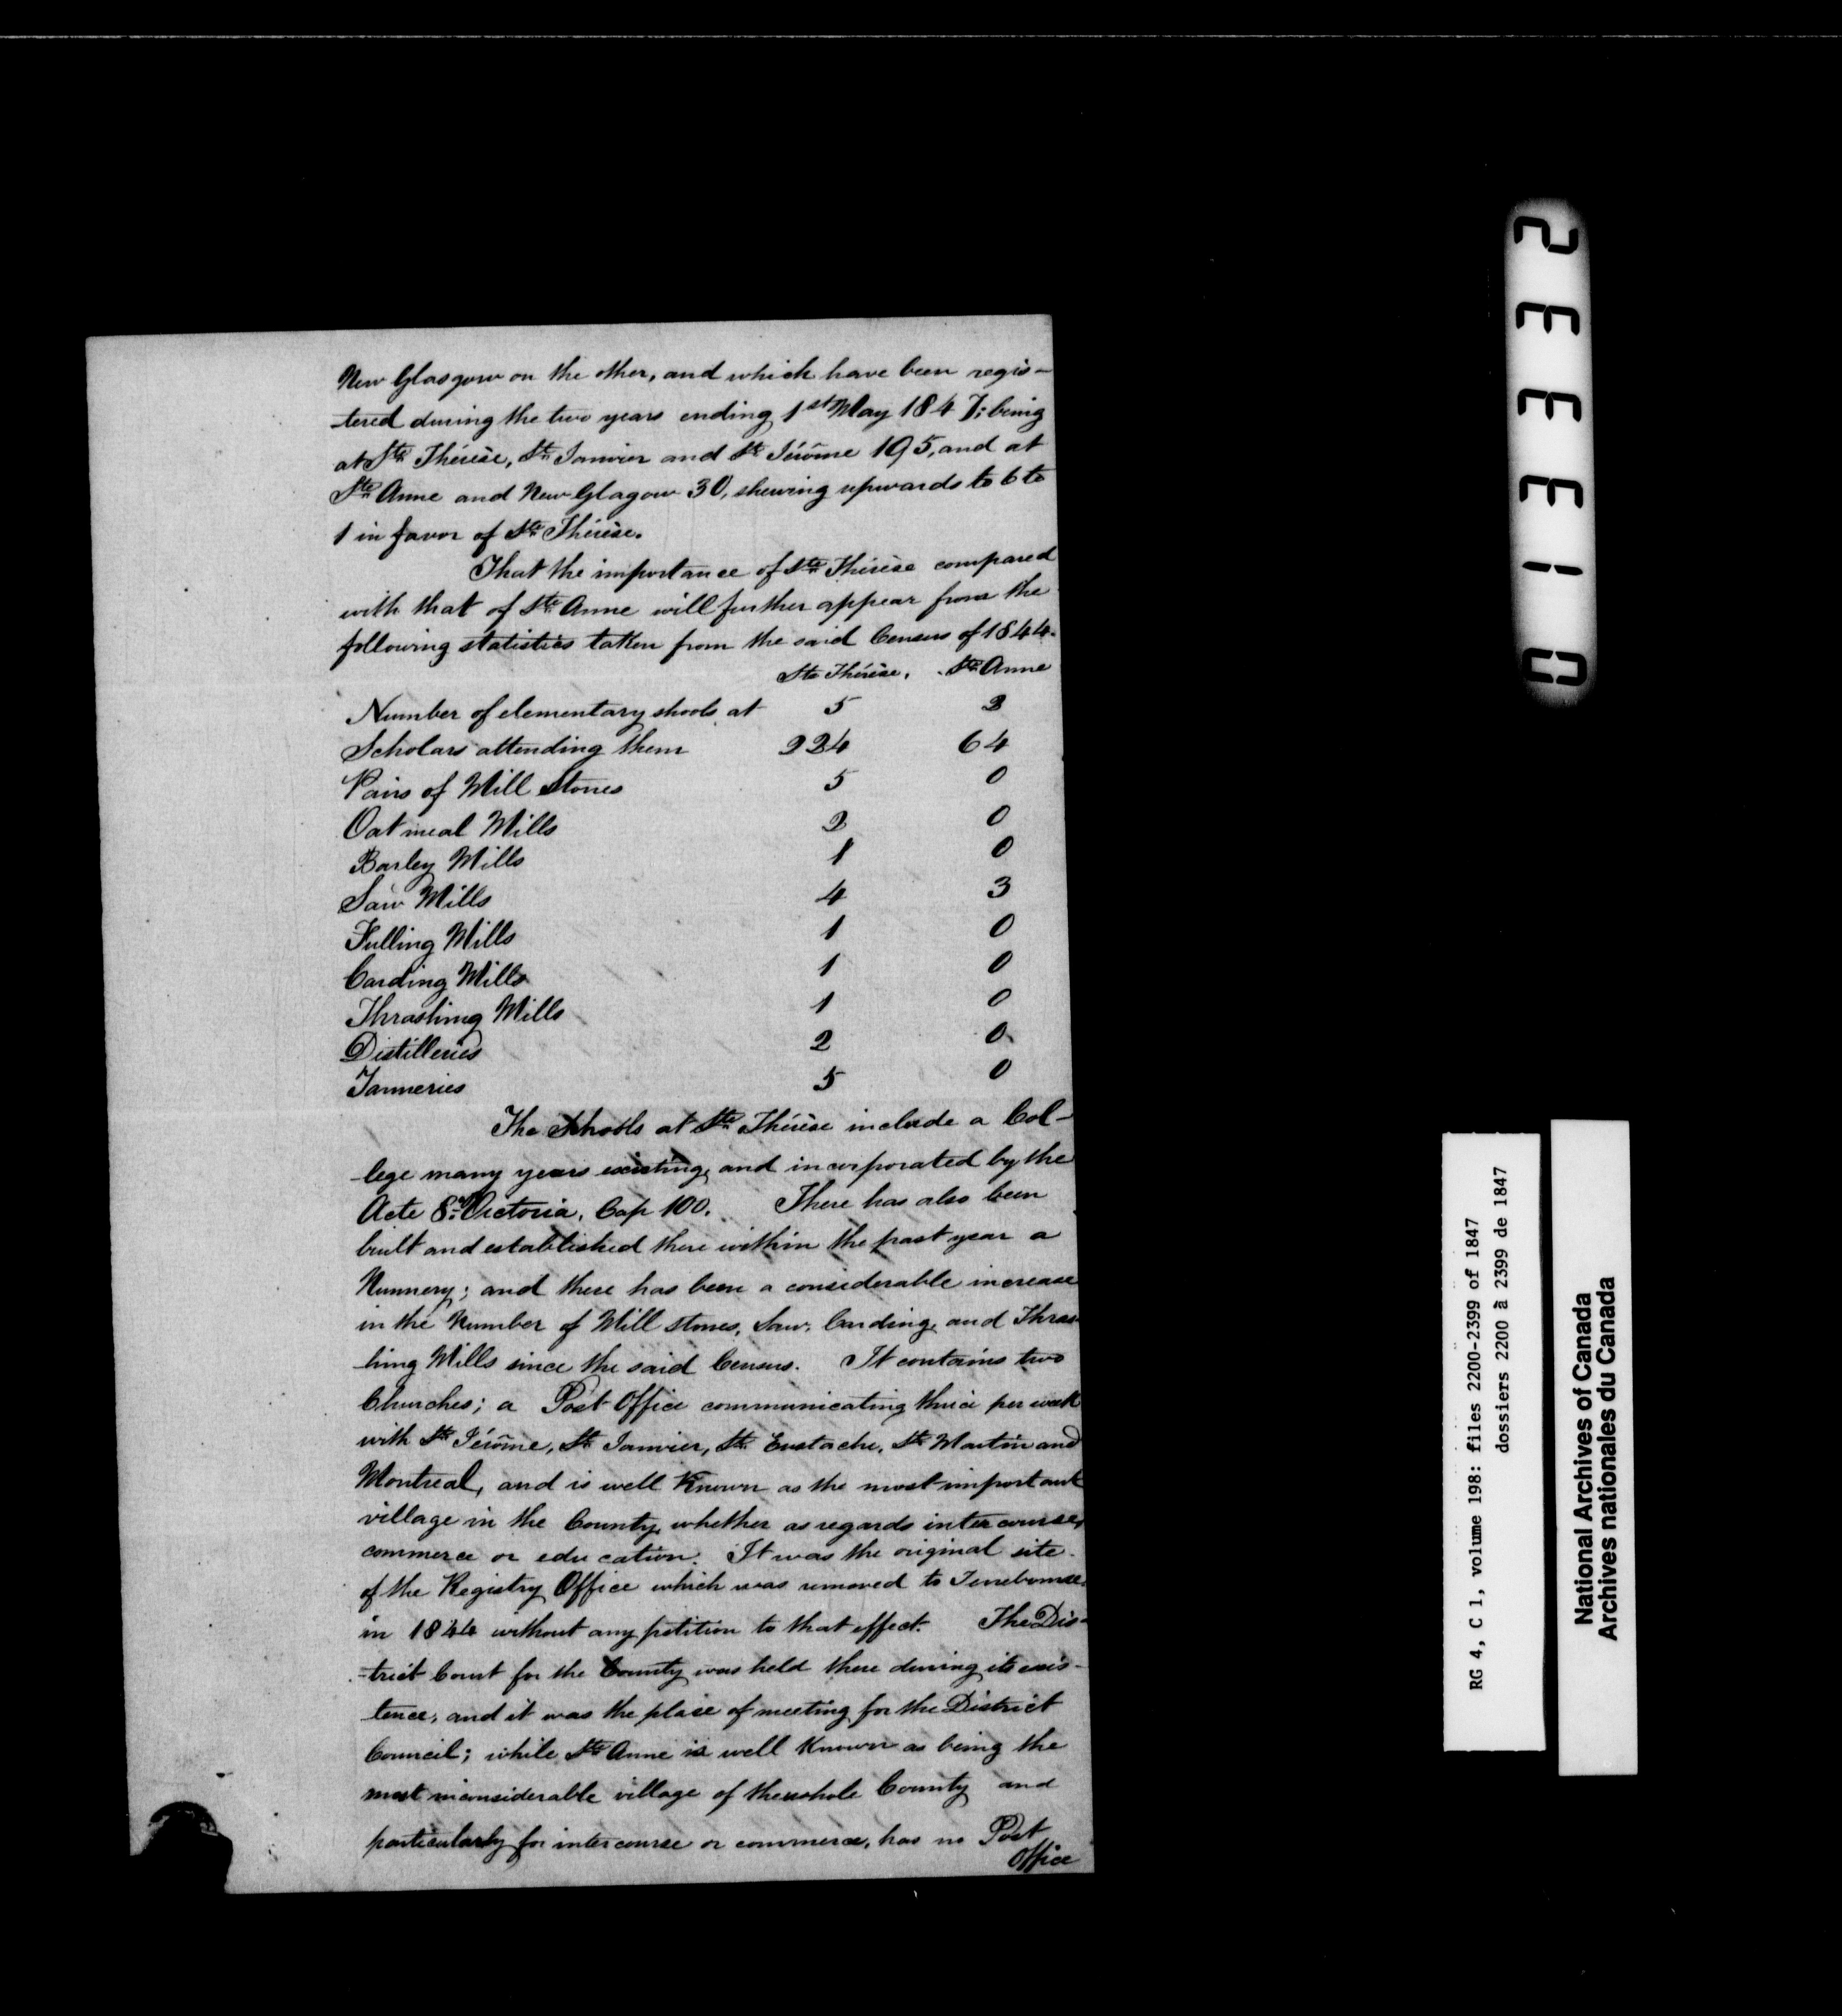 New Glasgow on the other, and which have been regis-
tered during the two years ending 1st May 1847; being
at Ste Thérèse, St Janvier and St Jérôme 195, and at
Ste Anne and New Glagow 30, shewing upwards to 6 to
1 in favor of Ste Thérèse.
That the importance of Ste Thérèse compared
with that of Ste Anne will further appear from the
following statistics taken from the said Census of 1844.
Ste Thérèse. Ste Anne
Number of elementary shools at 5 2
Scholars attending them 224 64
Pairs of Mill Stones 5 0
Oat meal Mills 2 0
Barley Mills 1 0
Saw Mills 4 3
Fulling Mills 1 0
Carding Mills 1 0
Thrashing Mills 1 0
Distilleries 2 0
Tanneries 5 0
The Schools at Ste Thérèse include a Col-
lege many years existing, and incorporated by the
Acte 8th Victoria, Cap 100. There has also been
built and established there within the past year a
Nunnery; and there has been a considerable increase
in the Number of Mill stones, Saw, Carding and Thras-
hing Mills since the said Census. It contains two
Churches; a Post Office communicating thrice per week
with St Jérôme, St Janvier, St Eustache, St Martin and
Montreal, and is well Known as the most important
village in the County, whether as regards intercourse,
commerce or education. It was the original site
of the Registry Office which was removed to Terrebonne
in 1844 without any petition to that effect. The Dis-
trict Court for the County was held there during its exis-
tence, and it was the place of meeting for the District
Council; while Ste Anne is well Known as being the
most inconsiderable village of the whole County and
particularly for intercourse or commerce, has no Post
Office
013332
RG 4, C 1, volume 198: files 2200-2399 of 1847
dossiers 2200 à 2399 de 1847
National Archives of Canada
Archives nationales du Canada